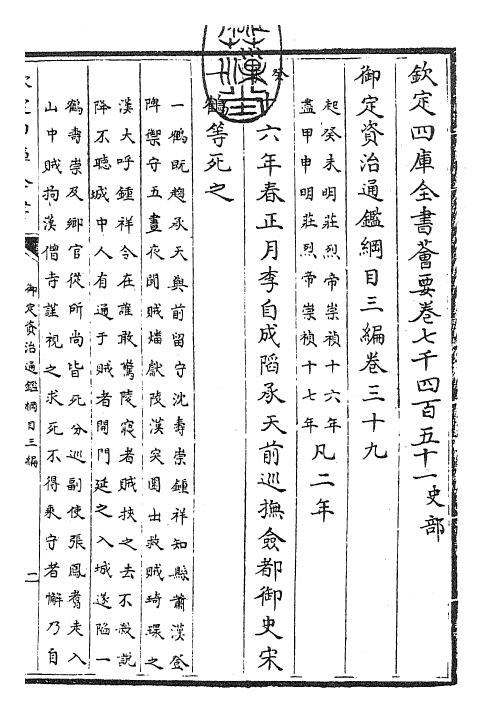 欽定四庫全書薈要卷七千四百五十一史部
御定資治通鑑綱目三編卷三十九
起癸未明莊烈帝崇禎十六年
盡甲申明莊烈帝崇禎十七年
凡二年
癸
十六年春正月李自成䧟承天前巡撫僉都御史宋
一鶴等死之
一鶴既趨承天與前留守沈壽崇鍾祥知縣蕭漢登
陴禦守五晝夜聞賊燔獻陵漢突圍出救賊琦環之
漢大呼鍾祥令在誰敢驚陵寢者賊挾之去不殺説
降不聽城中人有通于賊者開門延之入城遂陷一
鶴壽崇及鄉官從所尚皆死分巡副使張鳳翥走入
山中賊拘漢僧寺謹視之求死不得乘守者懈乃自
御定資治通鑑綱目三編